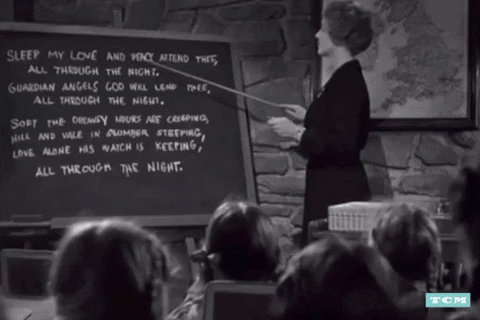 SLEEP MY LOVE AND PEACE ATTEND THEE,
ALL THROUGH THE NIGHT.
GUARDIAN ANGELS GOD WILL LEND THEE,
ALL THROUGH THE NIGHT.
SOFT THE DROWSY HOURS ARE CREEPING,
HILL AND VALE IN SLUMBER STEEPING,
LOVE ALONE HIS WATCH IS KEEPING,
ALL THROUGH THE NIGHT.
TCM